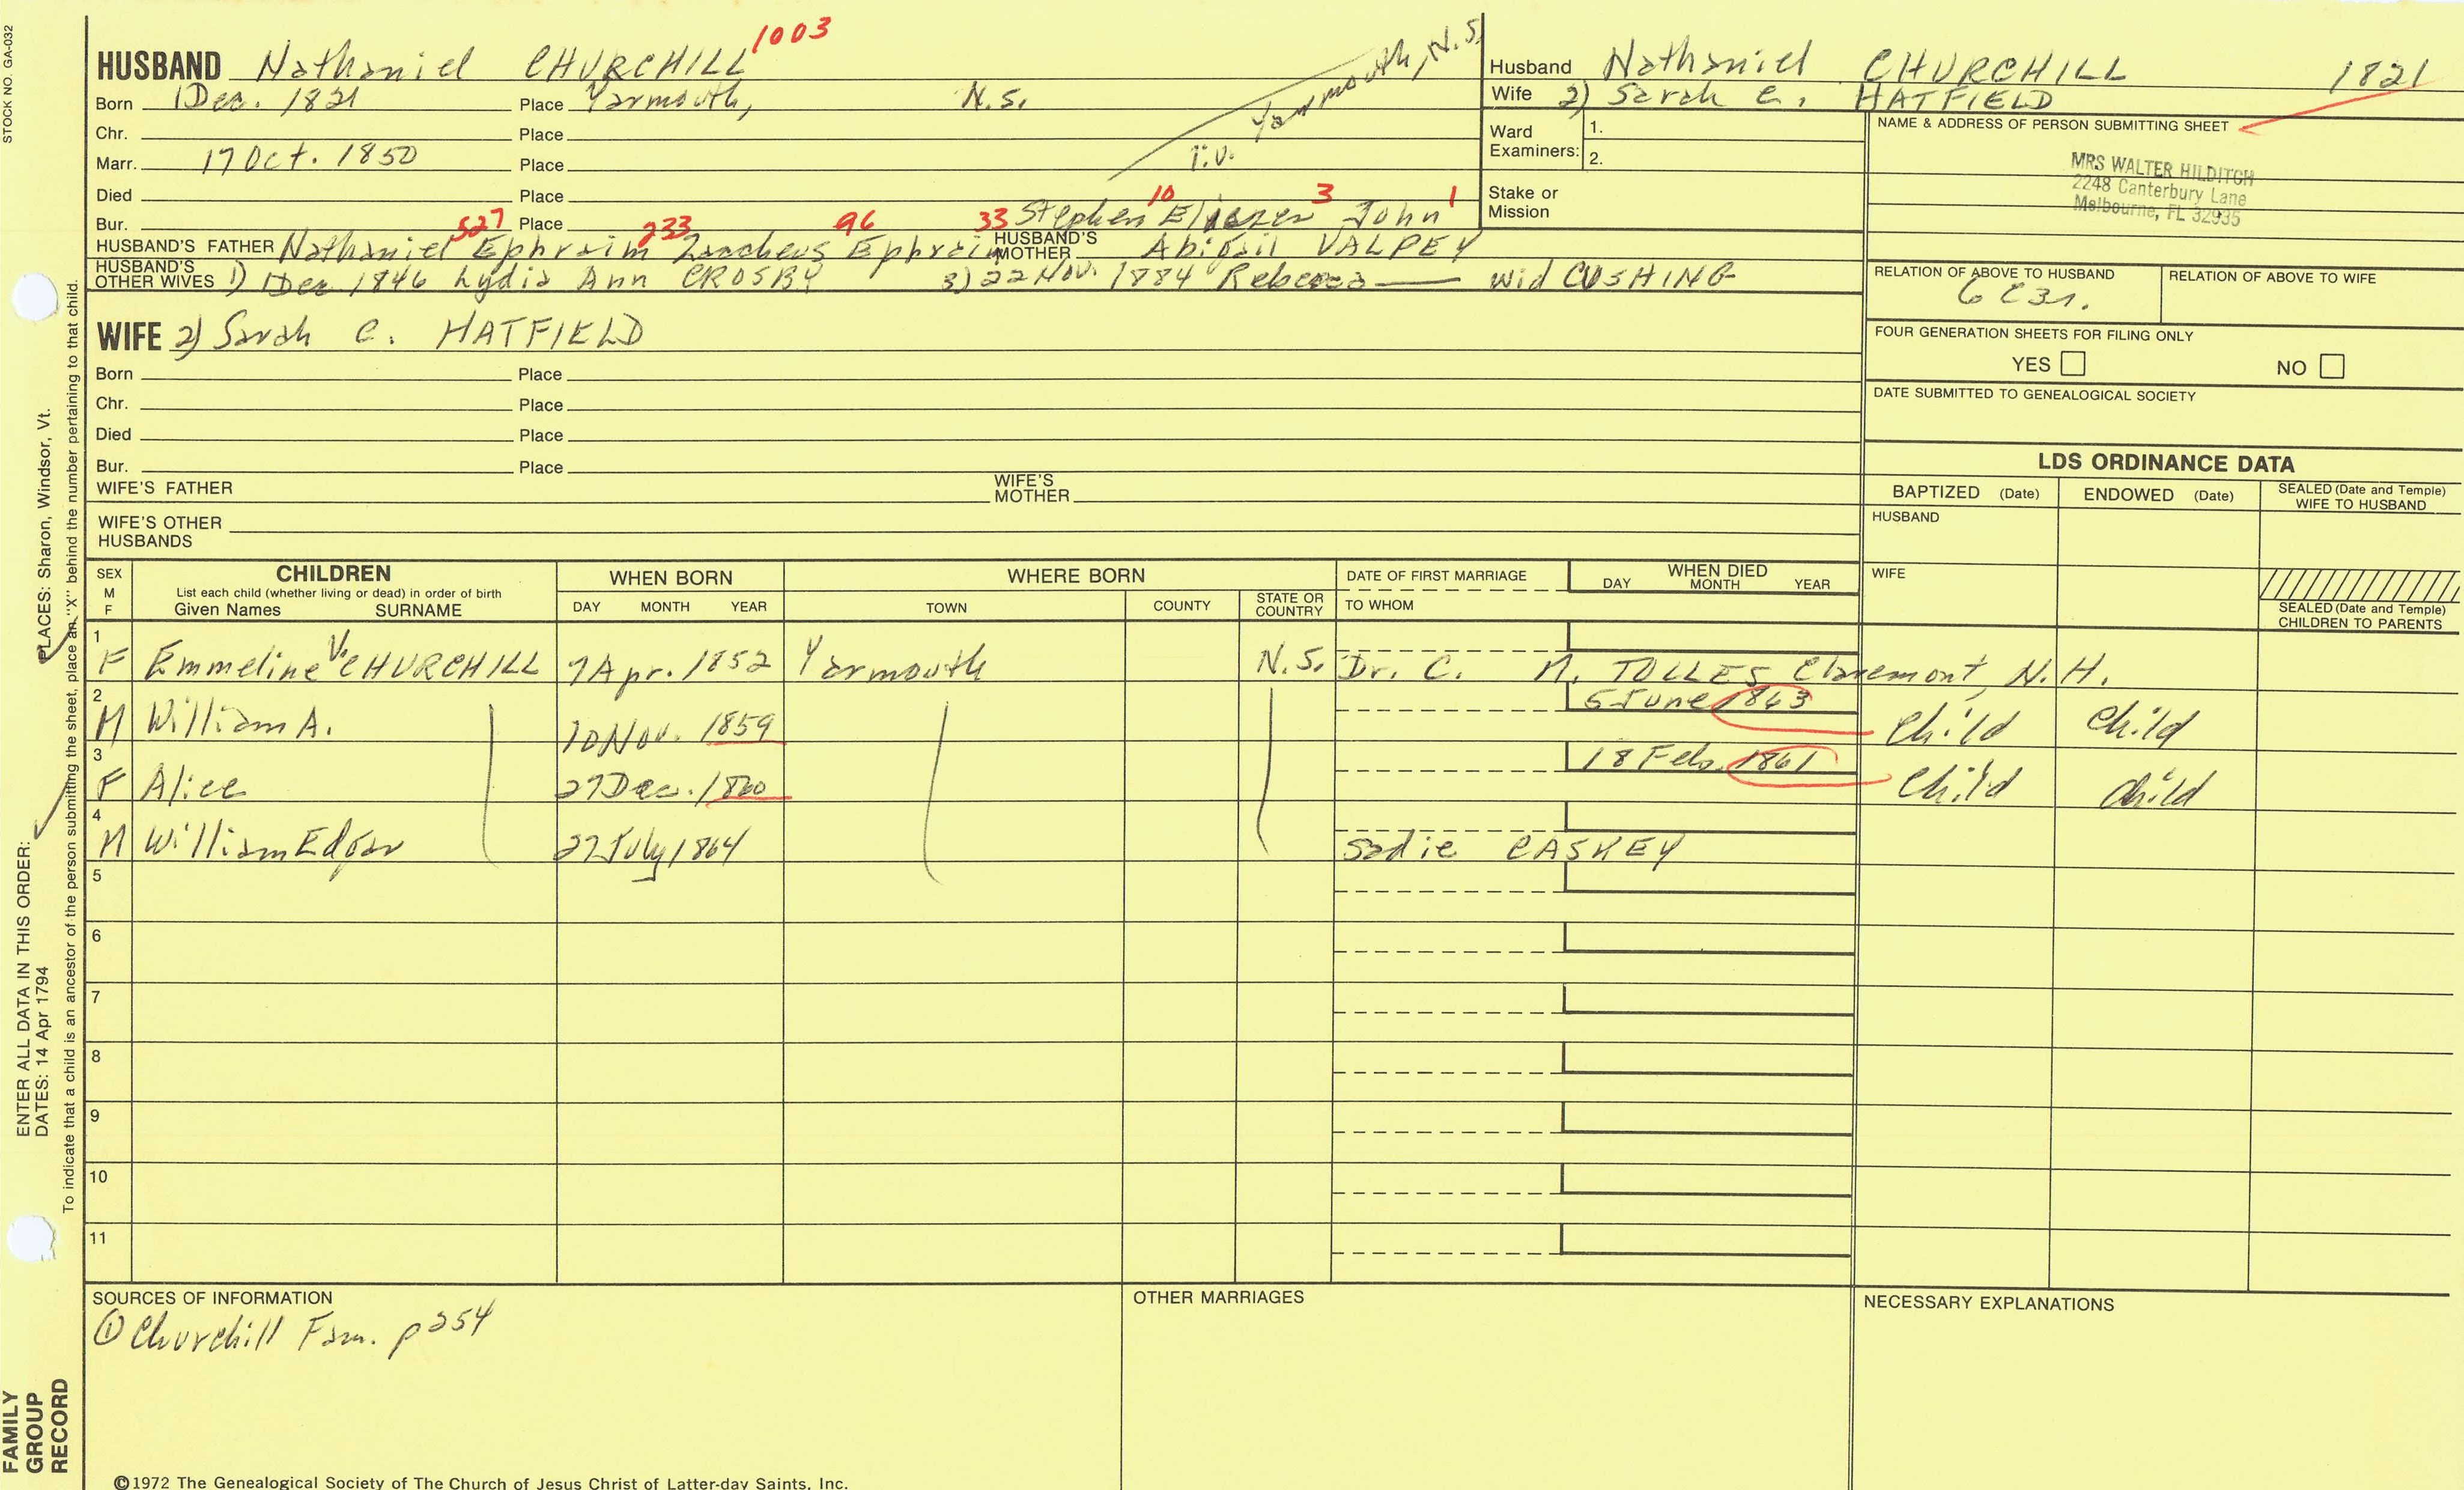 STOCK NO. GA-032
HUSBAND Nathaniel CHURCHILL 1003
Born 1 Dec. 1821 Place Yarmouth, N.S.
Chr. Place
Marr. 17 Oct. 1850 Place
Died Place
Bur. Place
Yarmouth, N.S.
527 233 96 33 Stephen 10 Eliezer 3 John 1
HUSBAND'S FATHER Nathaniel Ephraim Zaccheus Ephraim HUSBAND'S MOTHER Abigail VALPEY
HUSBAND'S OTHER WIVES 1) Dec 1846 Lydia Ann CROSBY 3) 22 Nov. 1884 Rebecca —— wid CUSHING
Husband Nathaniel CHURCHILL 1821
Wife 2) Sarah C. HATFIELD
Ward Examiners: 1.
2.
Stake or Mission
NAME & ADDRESS OF PERSON SUBMITTING SHEET
MRS WALTER HILDITCH
2248 Canterbury Lane
Melbourne, FL 32935
RELATION OF ABOVE TO HUSBAND RELATION OF ABOVE TO WIFE
6 C3r.
FOUR GENERATION SHEETS FOR FILING ONLY
YES NO
DATE SUBMITTED TO GENEALOGICAL SOCIETY
WIFE 2) Sarah C. HATFIELD
Born Place
Chr. Place
Died Place
Bur. Place
WIFE'S FATHER WIFE'S MOTHER
WIFE'S OTHER HUSBANDS
LDS ORDINANCE DATA
BAPTIZED (Date) ENDOWED (Date) SEALED (Date and Temple) WIFE TO HUSBAND
HUSBAND
WIFE
SEALED (Date and Temple) CHILDREN TO PARENTS
SEX M F CHILDREN
List each child (whether living or dead) in order of birth
Given Names SURNAME
WHEN BORN
DAY MONTH YEAR
WHERE BORN
TOWN COUNTY STATE OR COUNTRY
DATE OF FIRST MARRIAGE
TO WHOM
WHEN DIED
DAY MONTH YEAR
1 F Emmeline V. CHURCHILL 7 Apr. 1852 Yarmouth N.S. Dr. C. N. TOLLES Claremont, N.H.
2 M William A. 10 Nov. 1859 5 June 1863 Child Child
3 F Alice 27 Dec. 1860 18 Feb. 1861 Child Child
4 M William Edgar 27 July 1864 Sadie CASKEY
5
6
7
8
9
10
11
SOURCES OF INFORMATION
① Churchill Fam. p254
OTHER MARRIAGES
NECESSARY EXPLANATIONS
ENTER ALL DATA IN THIS ORDER:
DATES: 14 Apr 1794 PLACES: Sharon, Windsor, Vt.
To indicate that a child is an ancestor of the person submitting the sheet, place an "X" behind the number pertaining to that child.
FAMILY
GROUP
RECORD
©1972 The Genealogical Society of The Church of Jesus Christ of Latter-day Saints, Inc.